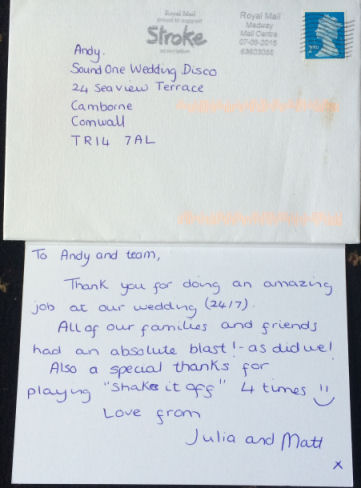 Royal Mail
proud to support
Stroke
association
Royal Mail
Medway
Mail Centre
07-08-2015
2ND
Andy.
Sound One Wedding Disco
24 Seaview Terrace
Camborne
Cornwall
TR14 7AL
To Andy and team,
Thank you for doing an amazing
job at our wedding (24/7).
All of our families and friends
had an absolute blast! - as did we!
Also a special thanks for
playing "Shake it off" 4 times
Love from
Julia and Matt
x